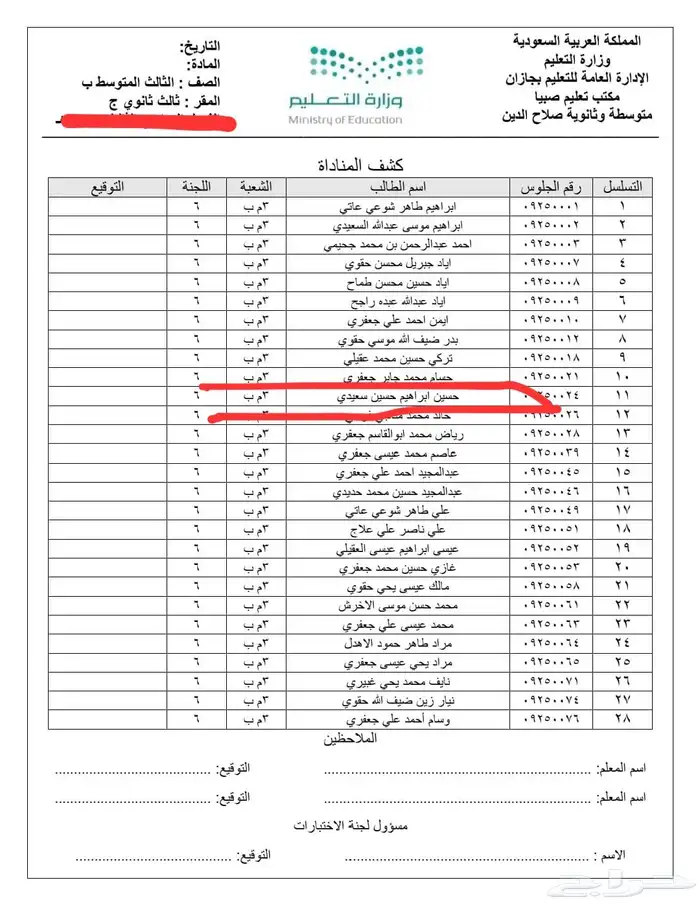 المملكة العربية السعودية
وزارة التعليم
الإدارة العامة للتعليم بجازان
مكتب تعليم صبيا
متوسطة وثانوية صلاح الدين
وزارة التعليم
Ministry of Education
التاريخ:
المادة:
الصف : الثالث المتوسط ب
المقر : ثالث ثانوي ج
كشف المناداة
التسلسل رقم الجلوس اسم الطالب الشعبة اللجنة التوقيع
١ ٠٩٢٥٠٠٠١ ابراهيم طاهر شوعي عاتي ٣م ب ٦
٢ ٠٩٢٥٠٠٠٢ ابراهيم موسى عبدالله السعيدي ٣م ب ٦
٣ ٠٩٢٥٠٠٠٣ احمد عبدالرحمن بن محمد جحيمي ٣م ب ٦
٤ ٠٩٢٥٠٠٠٧ اياد جبريل محسن حقوي ٣م ب ٦
٥ ٠٩٢٥٠٠٠٨ اياد حسين محسن طماح ٣م ب ٦
٦ ٠٩٢٥٠٠٠٩ اياد عبدالله عبده راجح ٣م ب ٦
٧ ٠٩٢٥٠٠١٠ ايمن احمد علي جعفري ٣م ب ٦
٨ ٠٩٢٥٠٠١٢ بدر ضيف الله موسي حقوي ٣م ب ٦
٩ ٠٩٢٥٠٠١٨ تركي حسين محمد عقيلي ٣م ب ٦
١٠ ٠٩٢٥٠٠٢١ حسام محمد جابر جعفري ٣م ب ٦
١١ ٠٩٢٥٠٠٢٤ حسين ابراهيم حسين سعيدي ٣م ب ٦
١٢ ٠٩٢٥٠٠٢٦ خالد محمد ٣م ب ٦
١٣ ٠٩٢٥٠٠٢٨ رياض محمد ابوالقاسم جعفري ٣م ب ٦
١٤ ٠٩٢٥٠٠٣٩ عاصم محمد عيسى جعفري ٣م ب ٦
١٥ ٠٩٢٥٠٠٤٥ عبدالمجيد احمد علي جعفري ٣م ب ٦
١٦ ٠٩٢٥٠٠٤٦ عبدالمجيد حسين محمد حديدي ٣م ب ٦
١٧ ٠٩٢٥٠٠٤٩ علي طاهر شوعي عاتي ٣م ب ٦
١٨ ٠٩٢٥٠٠٥١ علي ناصر علي علاج ٣م ب ٦
١٩ ٠٩٢٥٠٠٥٢ عيسى ابراهيم عيسى العقيلي ٣م ب ٦
٢٠ ٠٩٢٥٠٠٥٣ غازي حسين محمد جعفري ٣م ب ٦
٢١ ٠٩٢٥٠٠٥٨ مالك عيسى يحي حقوي ٣م ب ٦
٢٢ ٠٩٢٥٠٠٦١ محمد حسن موسى الاخرش ٣م ب ٦
٢٣ ٠٩٢٥٠٠٦٣ محمد عيسى علي جعفري ٣م ب ٦
٢٤ ٠٩٢٥٠٠٦٤ مراد طاهر حمود الاهدل ٣م ب ٦
٢٥ ٠٩٢٥٠٠٦٥ مراد يحي عيسى جعفري ٣م ب ٦
٢٦ ٠٩٢٥٠٠٧١ نايف محمد يحي غبيري ٣م ب ٦
٢٧ ٠٩٢٥٠٠٧٤ نيار زين ضيف الله حقوي ٣م ب ٦
٢٨ ٠٩٢٥٠٠٧٦ وسام أحمد علي جعفري ٣م ب ٦
الملاحظين
اسم المعلم: ........................ التوقيع: ........................
اسم المعلم: ........................ التوقيع: ........................
مسؤول لجنة الاختبارات
الاسم : ........................ التوقيع: ........................
حراج